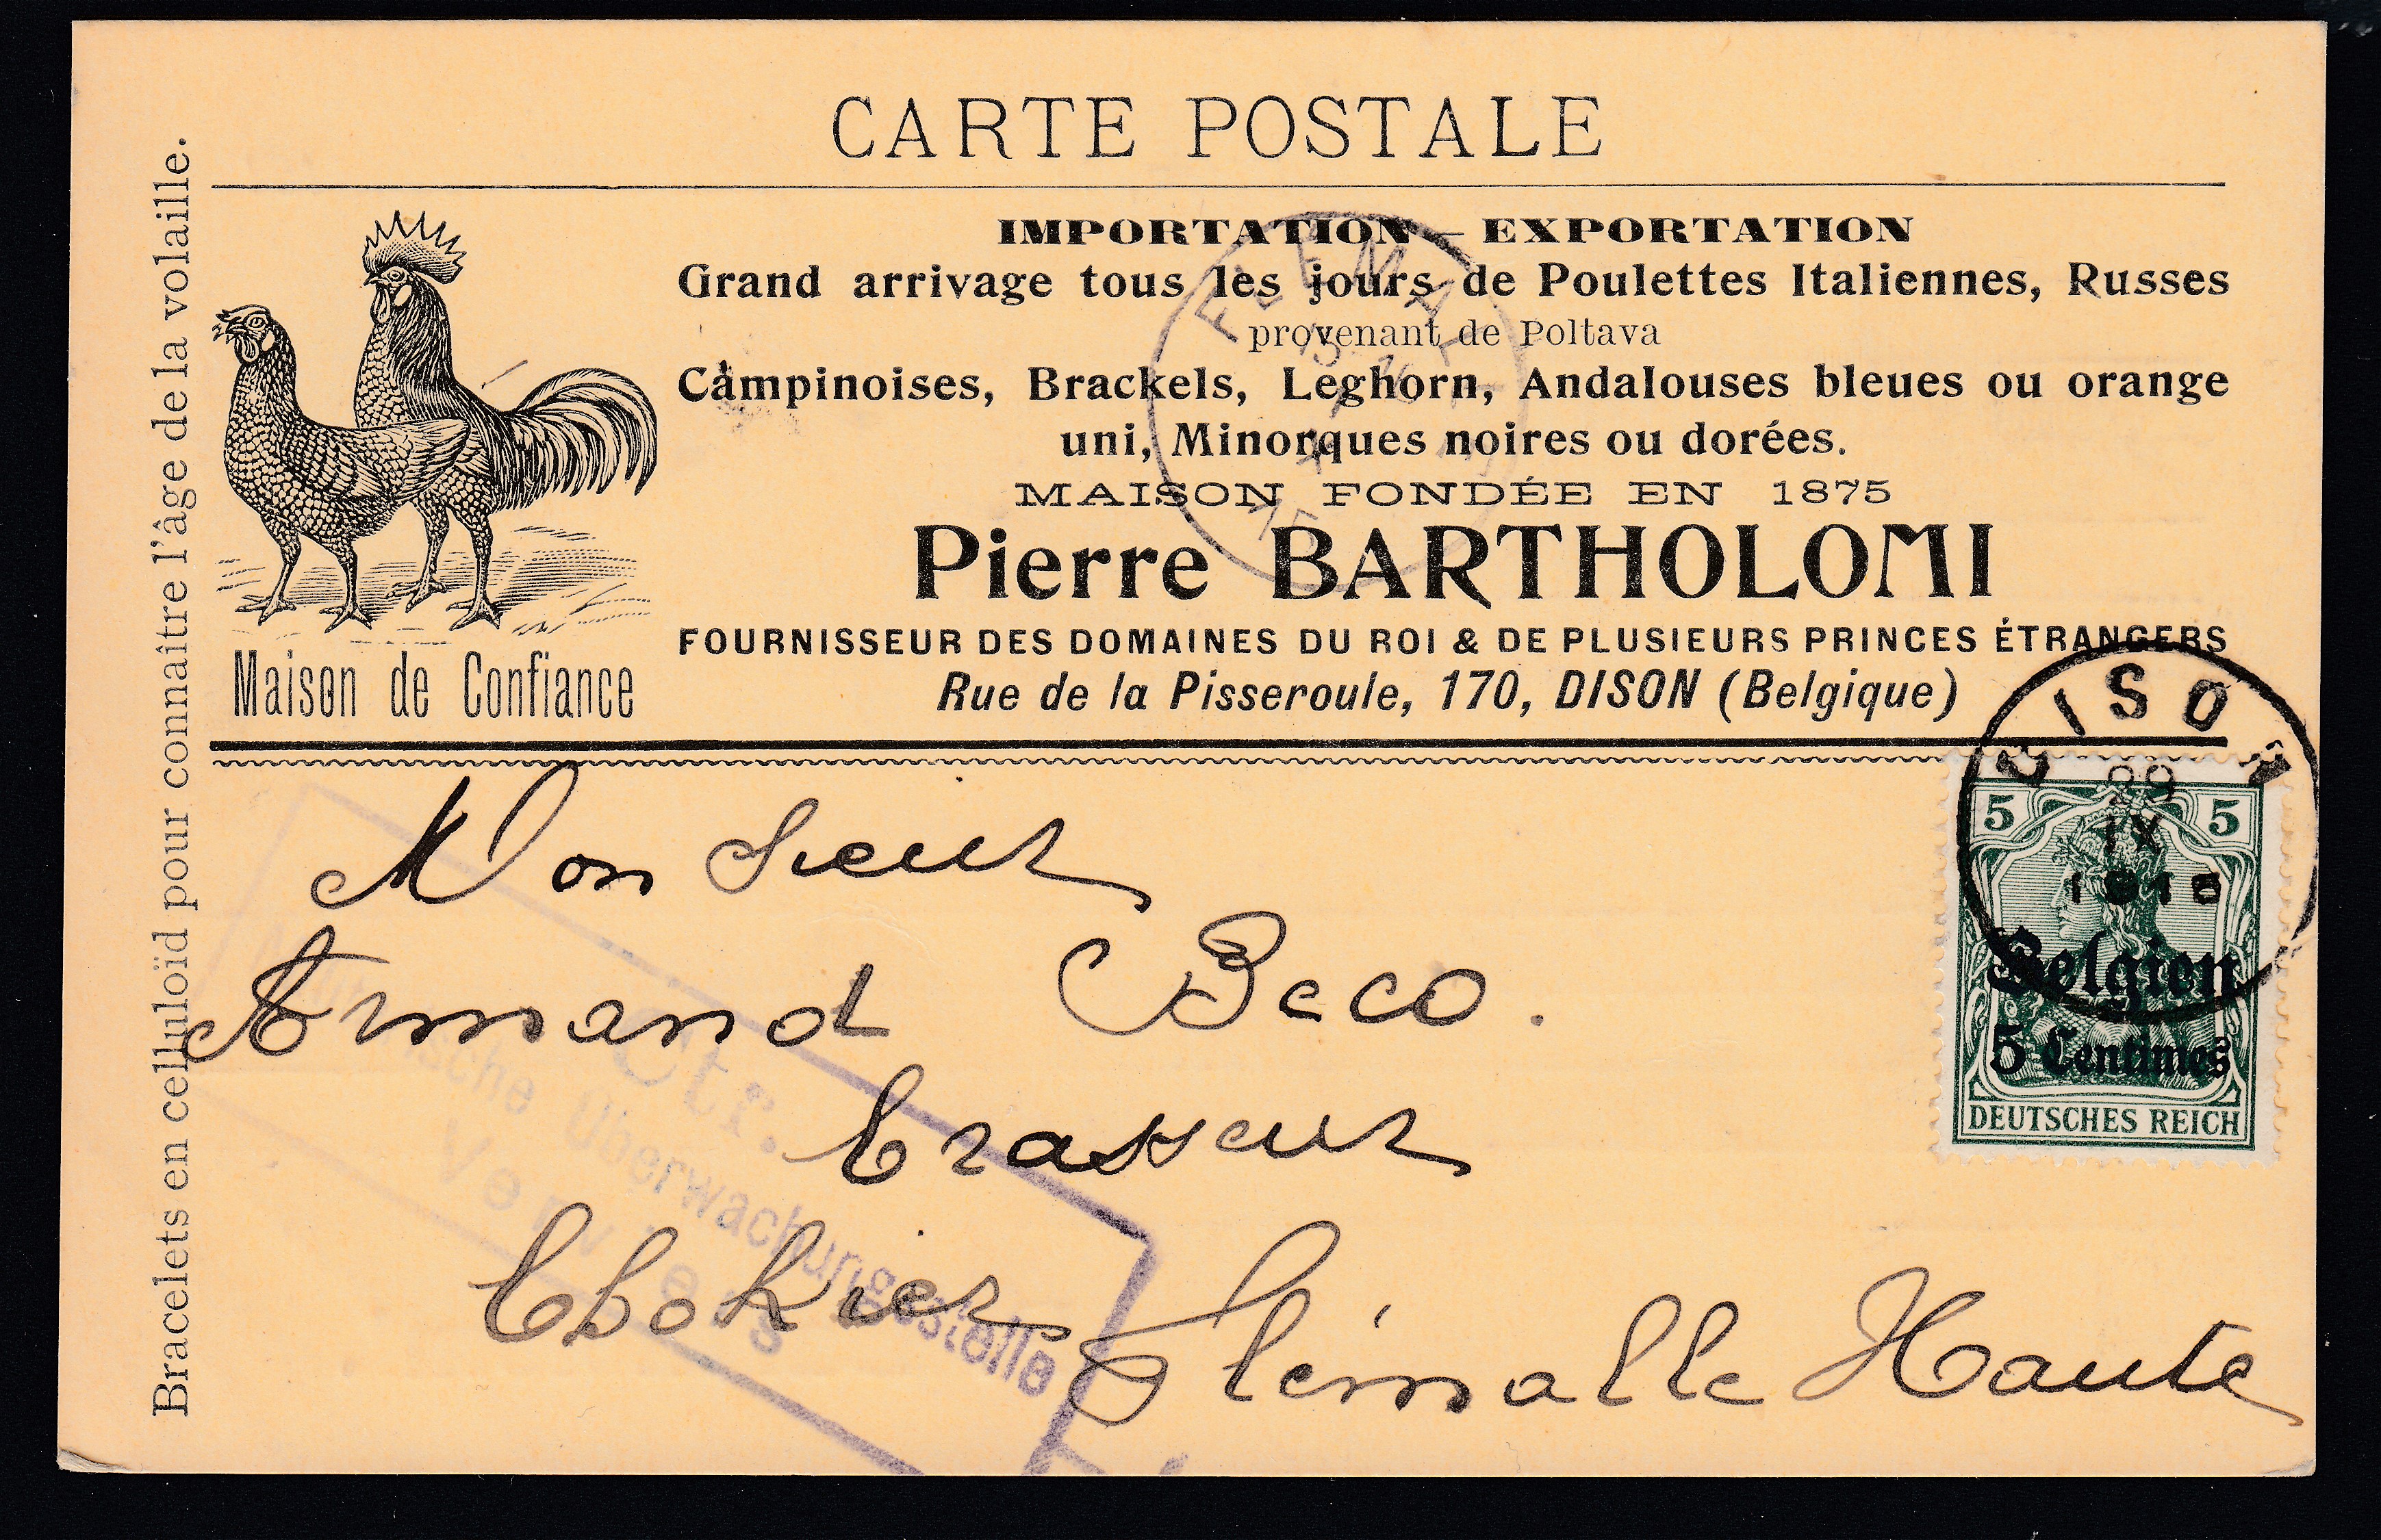 CARTE POSTALE
IMPORTATION — EXPORTATION
Grand arrivage tous les jours de Poulettes Italiennes, Russes
provenant de Poltava
Campinoises, Brackels, Leghorn, Andalouses bleues ou orange
uni, Minorques noires ou dorées.
MAISON FONDÉE EN 1875
Pierre BARTHOLOMI
FOURNISSEUR DES DOMAINES DU ROI & DE PLUSIEURS PRINCES ÉTRANGERS
Rue de la Pisseroule, 170, DISON (Belgique)
Maison de Confiance
Bracelets en celluloïd pour connaitre l'âge de la volaille.
DISON
29
IX
1916
5 5
Belgien
5 Centimes
DEUTSCHES REICH
Monsieur
Armand Beco.
brasseur
Chokier Flémalle Haute
Überwachungsstelle
Verviers